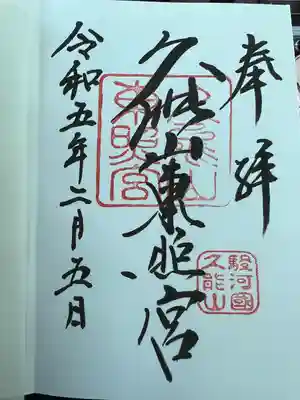 奉拝
駿河國
久能山
久能山東照宮
久能山
東照宮
令和五年二月五日